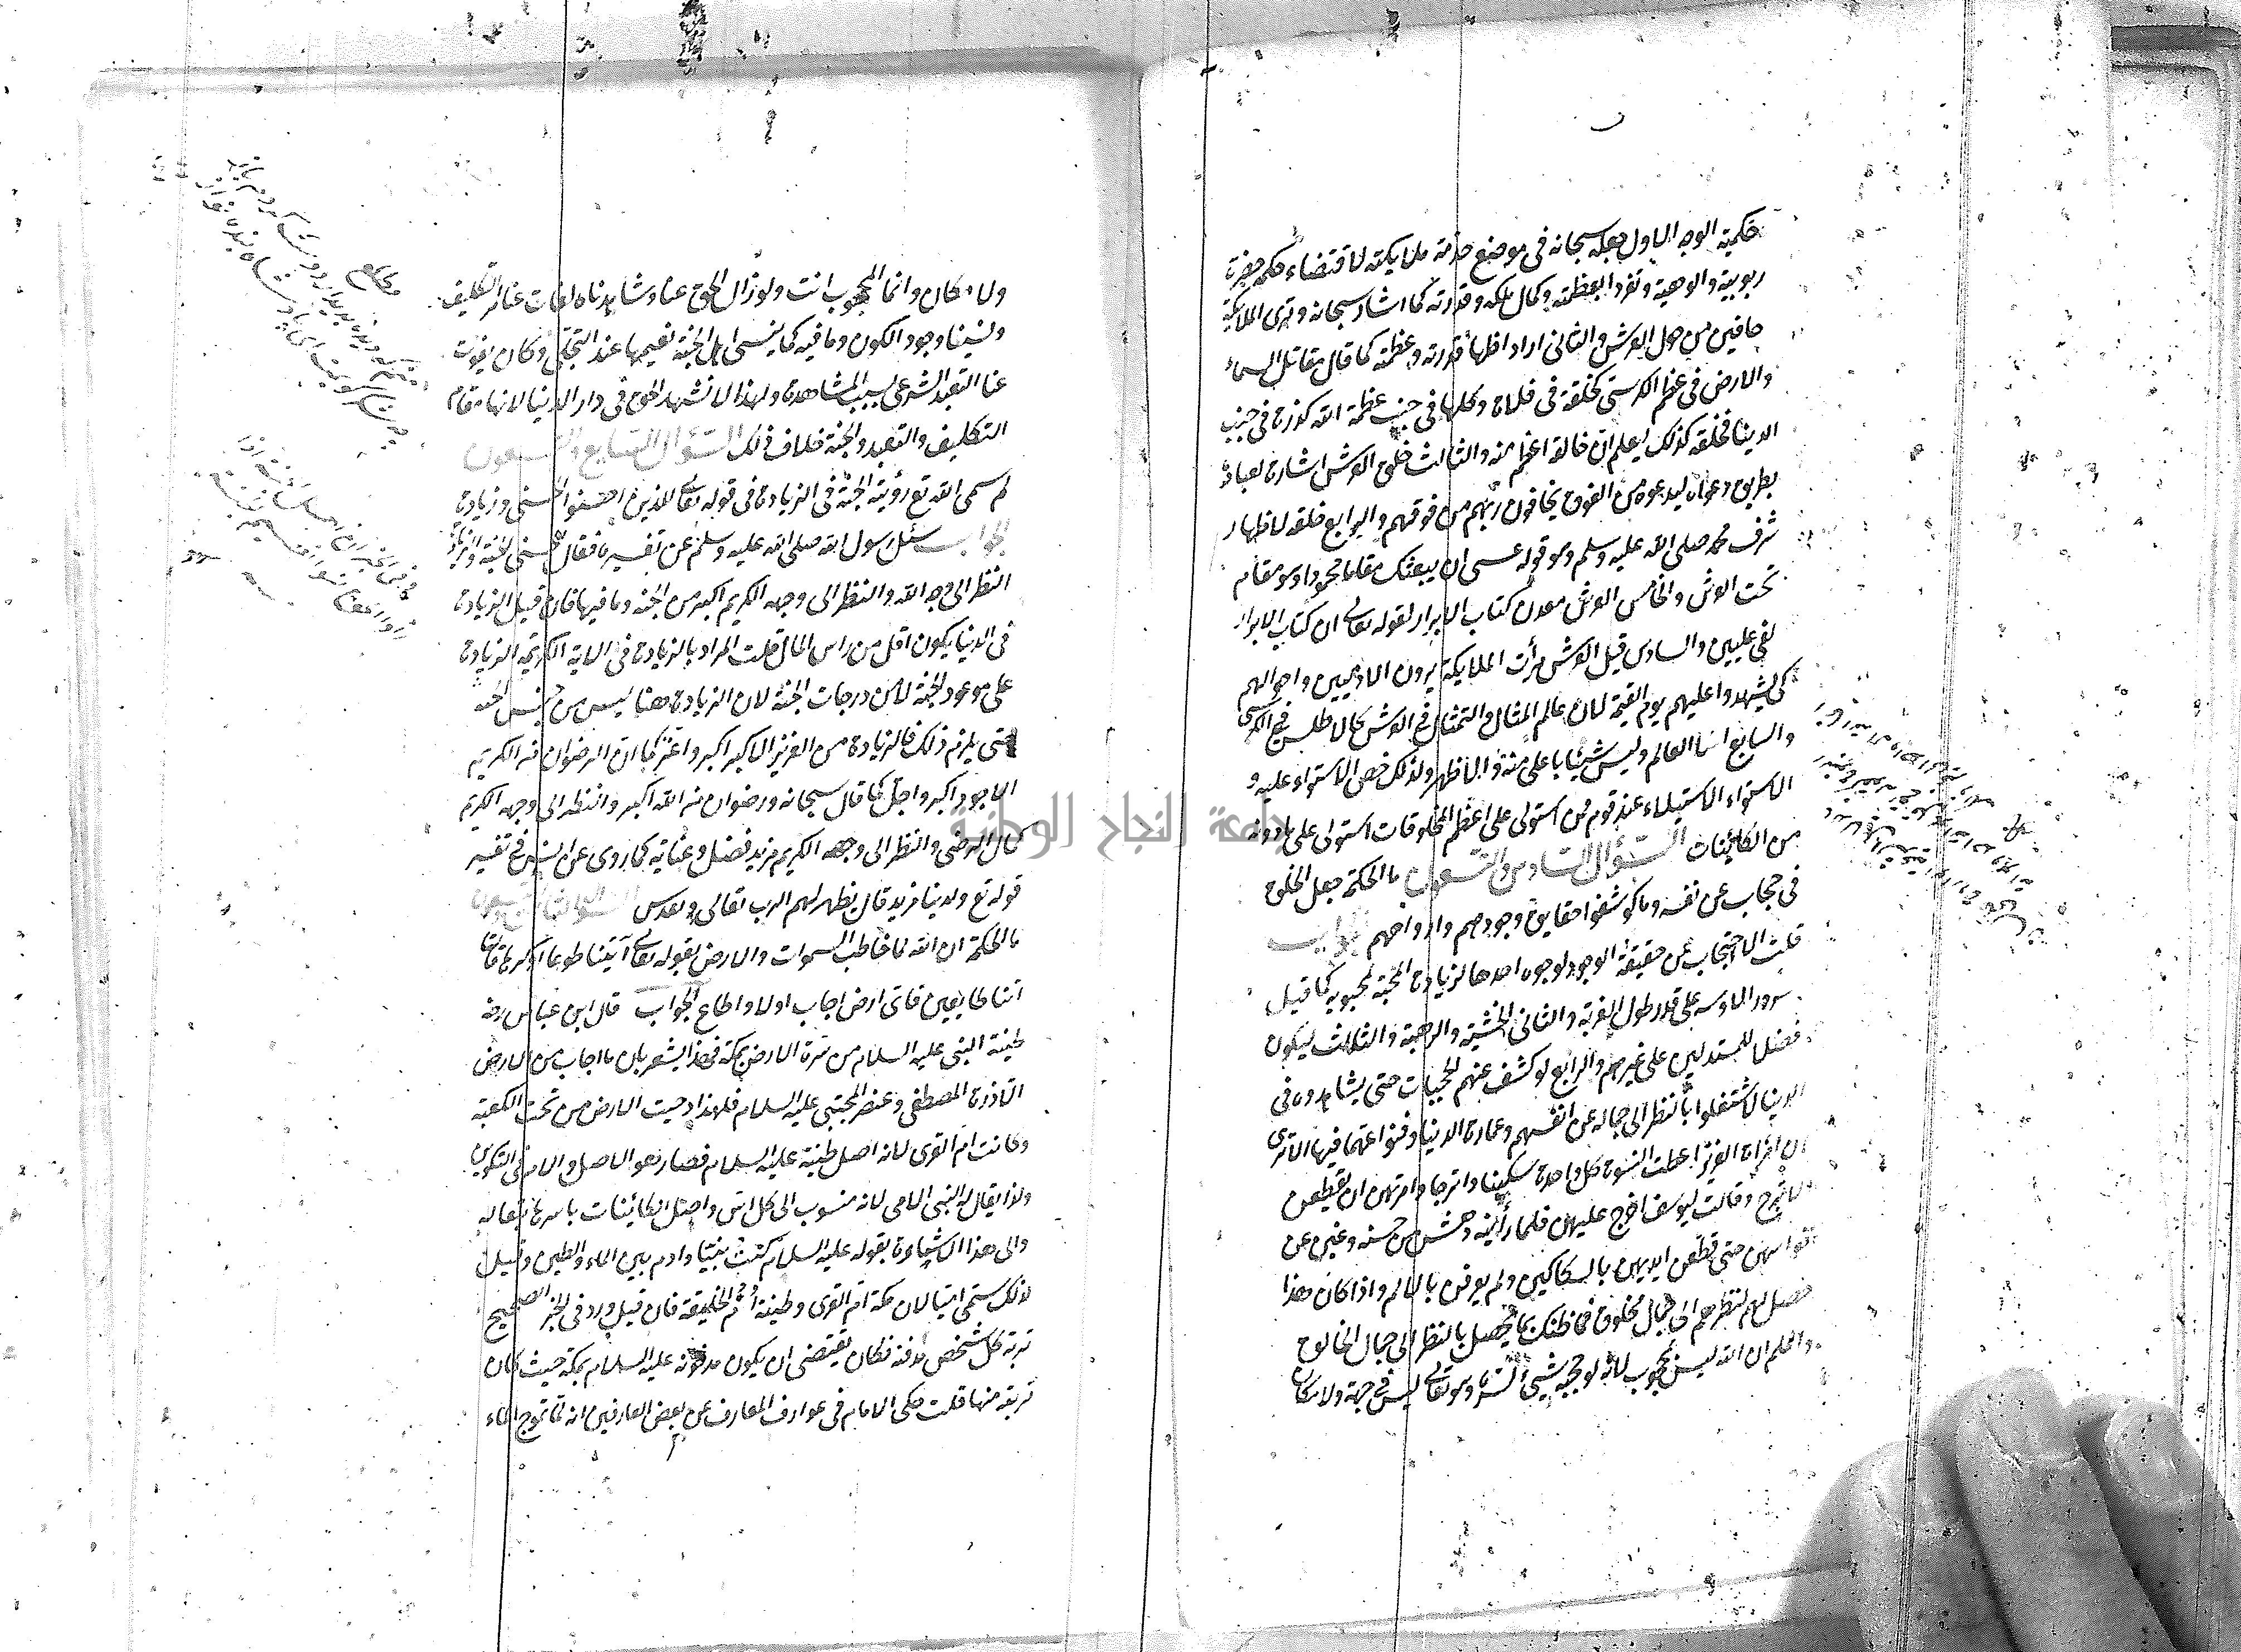 حكمية الوجه الاول جعله سبحانه فى موضع خدمة ملايكته لاقتضاء حكمه حضرت
ربوبية والوهية وتفرد العظمته وكمال ملكه وقدرته كما اشار سبحانه وترى الملايكة
حافين من حول العرش والثانى اراد اظهار قدرته وعظمته كما قال مقاتل السماء
والارض فى عظم الكرسى كحلقة فى فلاة وكلها فى جنب عظمة الله كذرة فى جنب
الدنيا فخلقه كذلك ليعلم ان خالقه اعظم منه والثالث خلق العرش اشارة لعباده
بطريق دعواه ليدعوه من الفوق يخافون ربهم من فوقهم والرابع خلقه لاظهار
شرف محمد صلى الله عليه وسلم وهو قوله عسى ان يبعثك مقاما محمودا وهو مقام
تحت العرش والخامس العرش معدن كتاب الابرار لقوله تعالى ان كتاب الابرار
لفى عليين والسادس قيل العرش مرأت الملايكة يرون الادميين واحوالهم
كى يشهدوا عليهم يوم القيمة لان عالم المثال والتمثال فى العرش كالاطلس فى الكرسى
والسابع العالم وليس شيئا باعلى منه الاظهر ولذلك خص الاستواء عليه و
الاستواء الاستيلاء عند قوم فمن استولى على اعظم المخلوقات استولى على مادونه
من الكائنات السؤال السادس والتسعون ما الحكمة جعل الخلق
فى حجاب عن نفسه وما كوشفوا حقايق وجودهم وارواحهم الجواب
قلت الاحتجاب عن حقيقة الوجود لوجوه احدها لزيادة المحبة لمحبوبه كما قيل
سرور الاوبه على قدر طول الغربة والثانى الخشية والرهبة والثالث ليكون
فضل للمستدلين على غيرهم والرابع لو كشف عنهم الحجبات حتى يشاهدوه فى
الدنيا لاشتغلوا بالنظر الى جماله عن انفسهم وعمارة الدنيا وفنوا عما فيها الاترى
ان امرأة العزيز اعطت النسوة كل واحدة سكينا واترجا وامرتهن ان يقطعن
الاترج وقالت ليوسف اخرج عليهن فلما رأينه دهشن من حسنه وغبن عن
حواسهن حتى قطعن ايديهن بالسكاكين ولم يعرفن بالالم واذا كان هذا
حصل لهم لنظرهم الى جمال مخلوق فما ظنك بما يحصل بالنظر الى جمال الخالق
واعلم ان الله ليس بمحجوب لانه لو حجبه شيئ لستره وهو تعالى ليس فى جهة ولا مكان
ولا مكان وانما المحجوب انت ولو زال الحق عنا وشاهدناه لفات عنا امر التكليف
ونسينا وجود الكون وما فيه كما ينسى اهل الجنة نعيمها عند التجلى وكان يفوت
عنا التعبد الشرعى بسبب المشاهدة ولهذا لا نشهد الحق فى دار الدنيا لانها مقام
التكليف والتعبد والجنة خلاف ذلك السؤال السابع والتسعون
لم سمى الله تع رؤية الجنة فى الزيادة فى قوله تعالى للذين احسنوا الحسنى وزيادة
الجواب سئل رسول الله صلى الله عليه وسلم عن تفسيره فقال الحسنى الجنة والزيادة
النظر الى وجه الله والنظر الى وجهه الكريم اكبر من الجنة وما فيها فان قيل الزيادة
فى الدنيا يكون اقل من راس المال قلت المراد بالزيادة فى الاية الكريمة الزيادة
على موعود الجنة لا من درجات الجنة لان الزيادة هنا ليس من جنس الجنة
حتى يلزم ذلك فالزيادة من العزيز الاكبر اكبر واعز كما ان الرضوان من الكريم
الاجود اكبر واجل كما قال سبحانه ورضوان من الله اكبر والنظر الى وجهه الكريم
كمال الرضى والنظر الى وجهه الكريم مزيد فضل وعناية كما روى عن انس فى تفسير
قوله تع ولدينا مزيد قال يظهر لهم الرب تعالى وتقدس السؤال الثامن والتسعون
ما الحكمة ان الله لما خاطب السموات والارض بقوله تعالى آيتنا طوعا او كرها قالتا
اتينا طايعين فاى ارض اجاب اولا واطاع الجواب قال ابن عباس رضه
طينة النبى عليه السلام من سرة الارض بمكة فهذا يشعر بان ما اجاب من الارض
الا ذرة المصطفى وعنصر المجتبى عليه السلام فلهذا دحيت الارض من تحت الكعبة
وكانت ام القرى لانه اصل طينة عليه السلام فصار هو الاصل والام فى التكوين
ولذا يقال له النبى الامى لانه منسوب الى كل اس واصل الكائنات باسرها تبعا له
والى هذا الاشارة بقوله عليه السلام كنت نبيا وادم بين الماء والطين وقيل
لذلك سمى اميا لان مكة ام القرى وطينة ام الخليقة فان قيل ورد فى الخبر الصحيح
تربة كل شخص مدفنه فكان يقتضى ان يكون مدفونه عليه السلام بمكة حيث كان
تربته منها قلت حكى الامام فى عوارف المعارف عن بعض العارفين انه لما تموج الماء
جامعة النجاح الوطنية